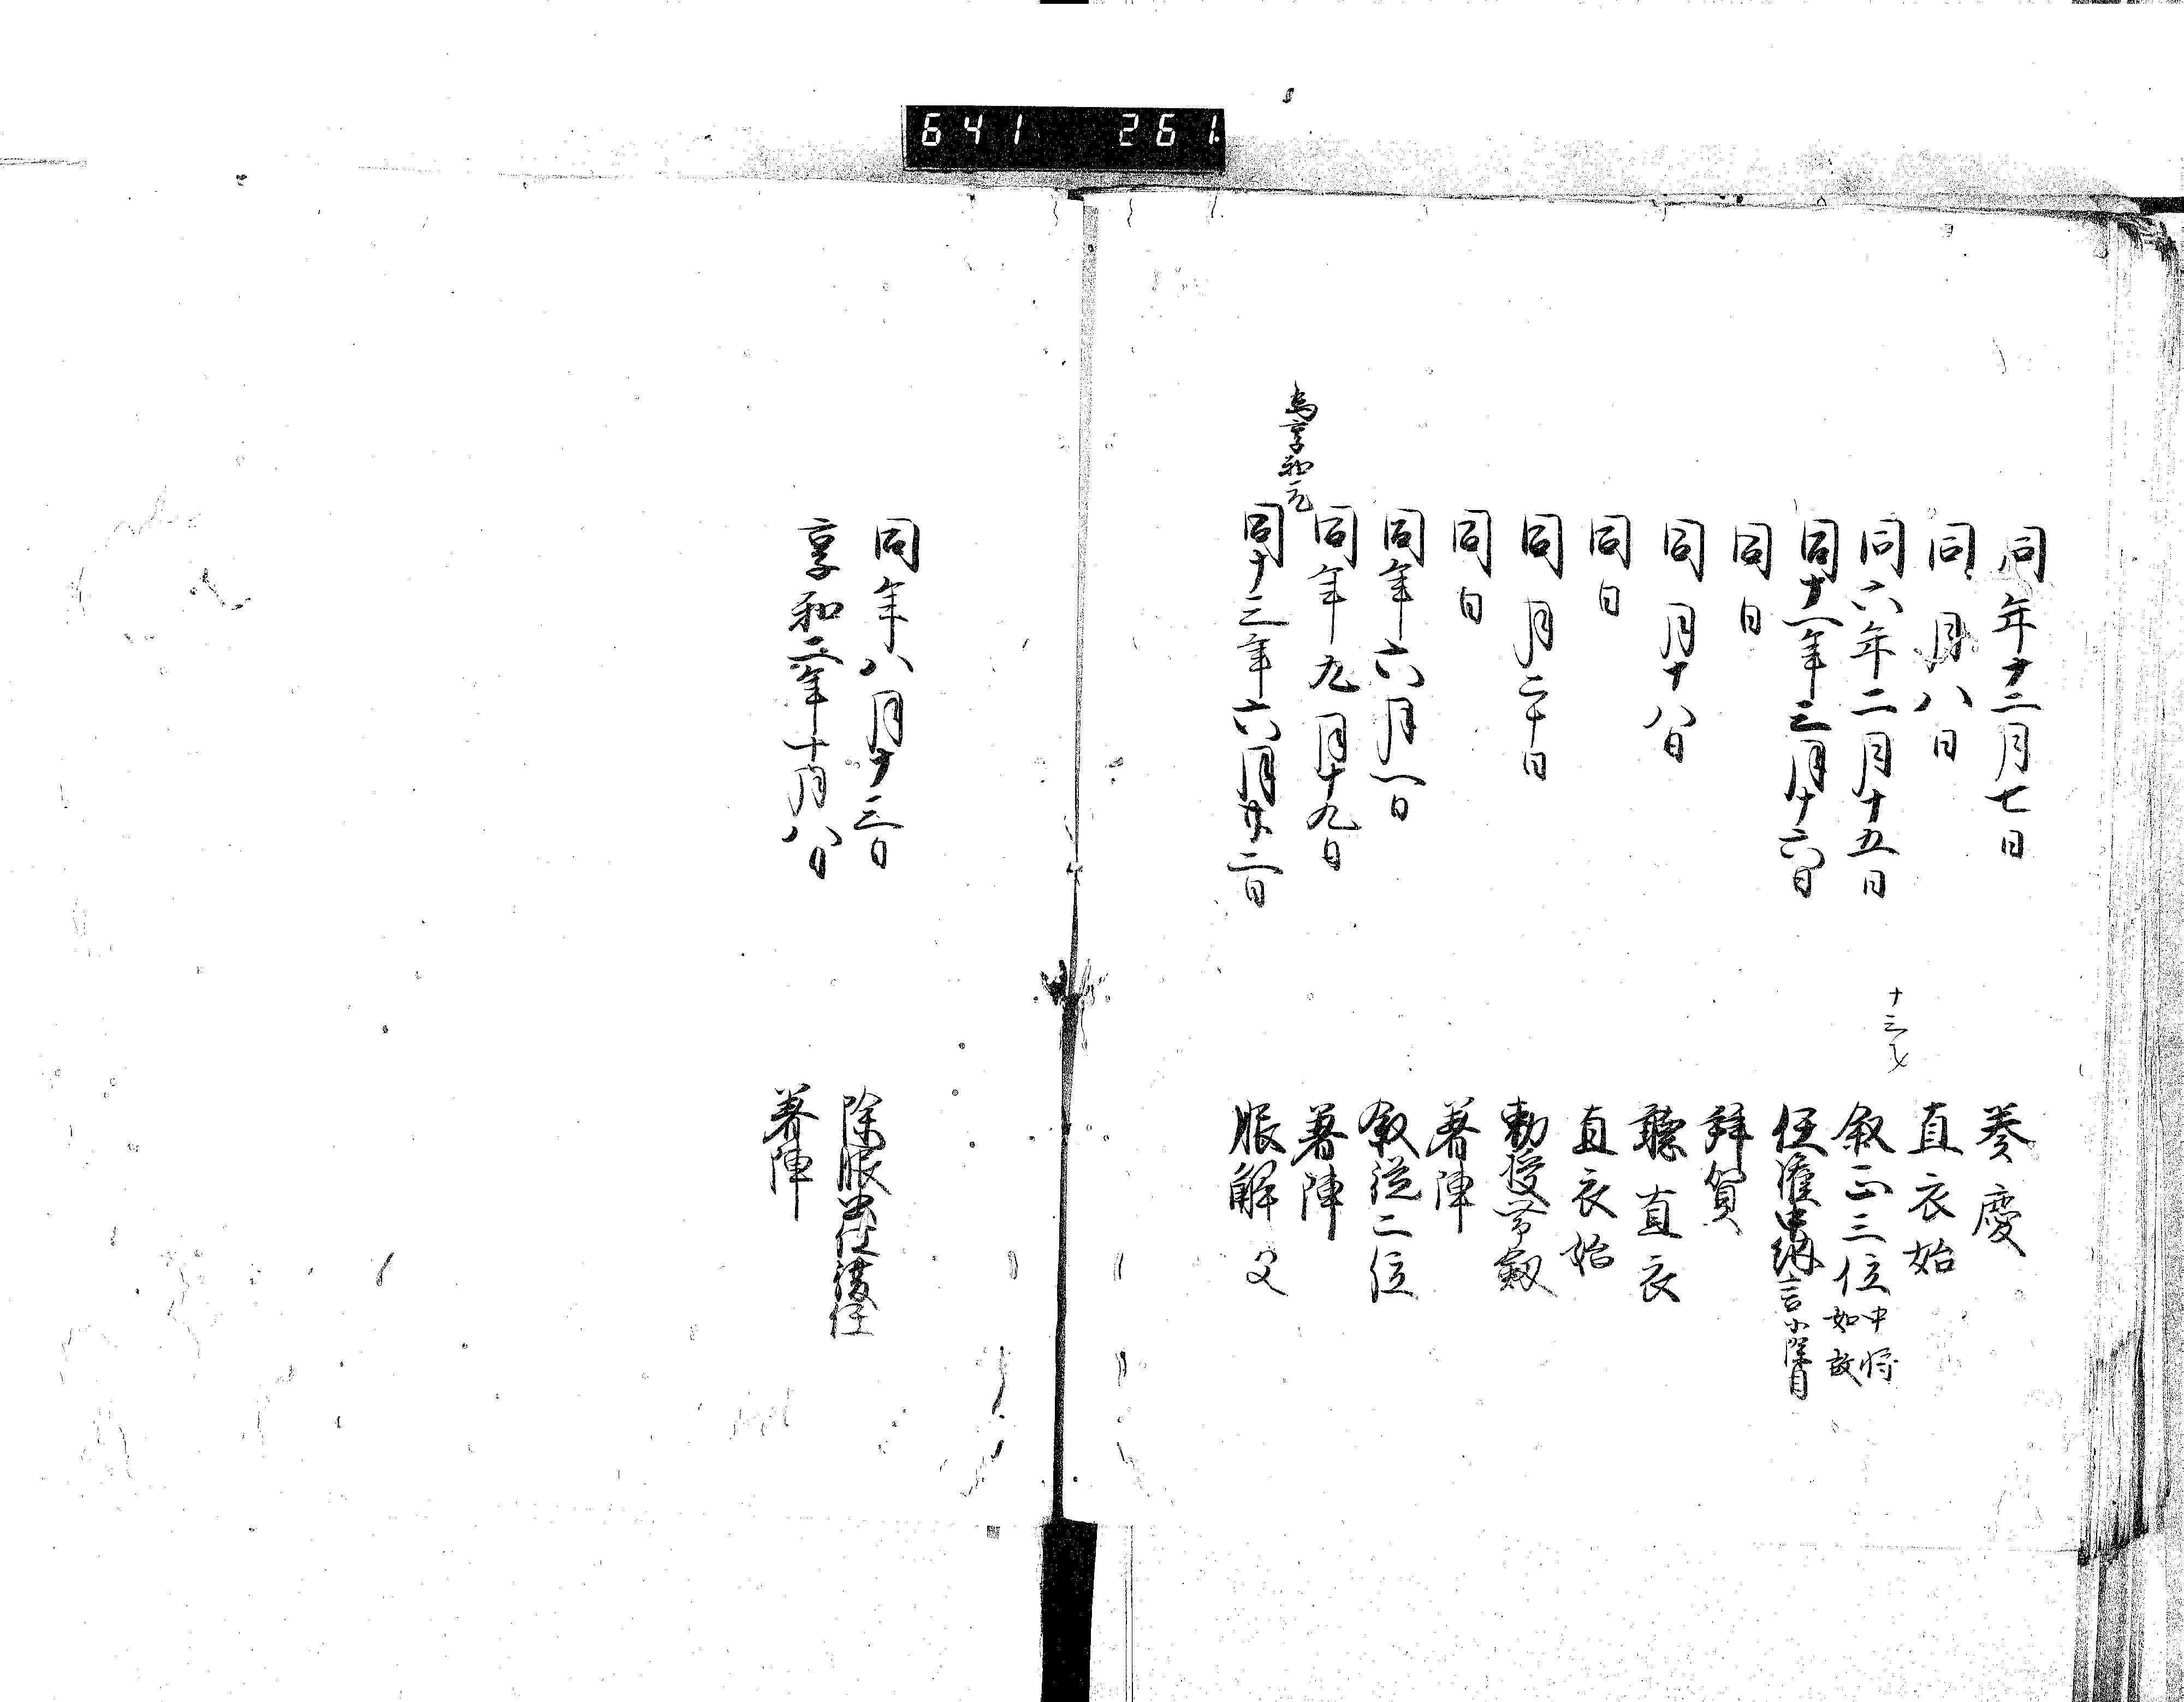 641 261.
同年十二月七日 奏慶
同月八日 直衣始
同六年二月十五日 叙正三位 中将如故
十三才
同十一年三月十六日 任権中納言 小除目
同日 拝賀
同月十八日 聴直衣
同日 直衣始
同月二十日 勅授帯剱
同日 著陣
同年六月一日 叙従二位
同年九月十九日 著陣
為享和元
同十三年六月廿二日 服解 父
同年八月十三日 除服出仕復任
享和二年十月八日 著陣